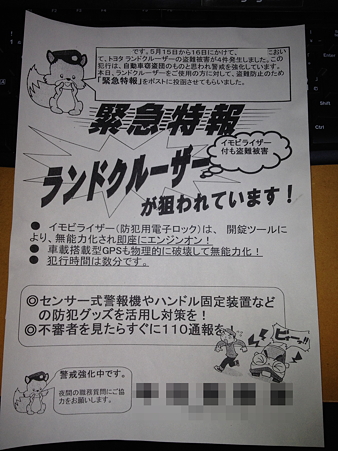 です。5月15日から16日にかけて、 において、トヨタ ランドクルーザーの盗難被害が4件発生しました。この
犯行は、自動車窃盗団のものと思われ警戒を強化しています。
本日、ランドクルーザーをご使用の方に対して、盗難防止のため
「緊急特報」をポストに投函させてもらいました。
緊急特報
イモビライザー
付も盗難被害
ランドクルーザー
が狙われています！
● イモビライザー（防犯用電子ロック）は、 開錠ツールに
より、無能力化され即座にエンジンオン！
● 車載搭載型GPSも物理的に破壊して無能力化！
● 犯行時間は数分です。
◎センサー式警報機やハンドル固定装置など
の防犯グッズを活用し対策を！
◎不審者を見たらすぐに110通報を
ビーッ!!
警戒強化中です。
夜間の職務質問にご協
力をお願いします。